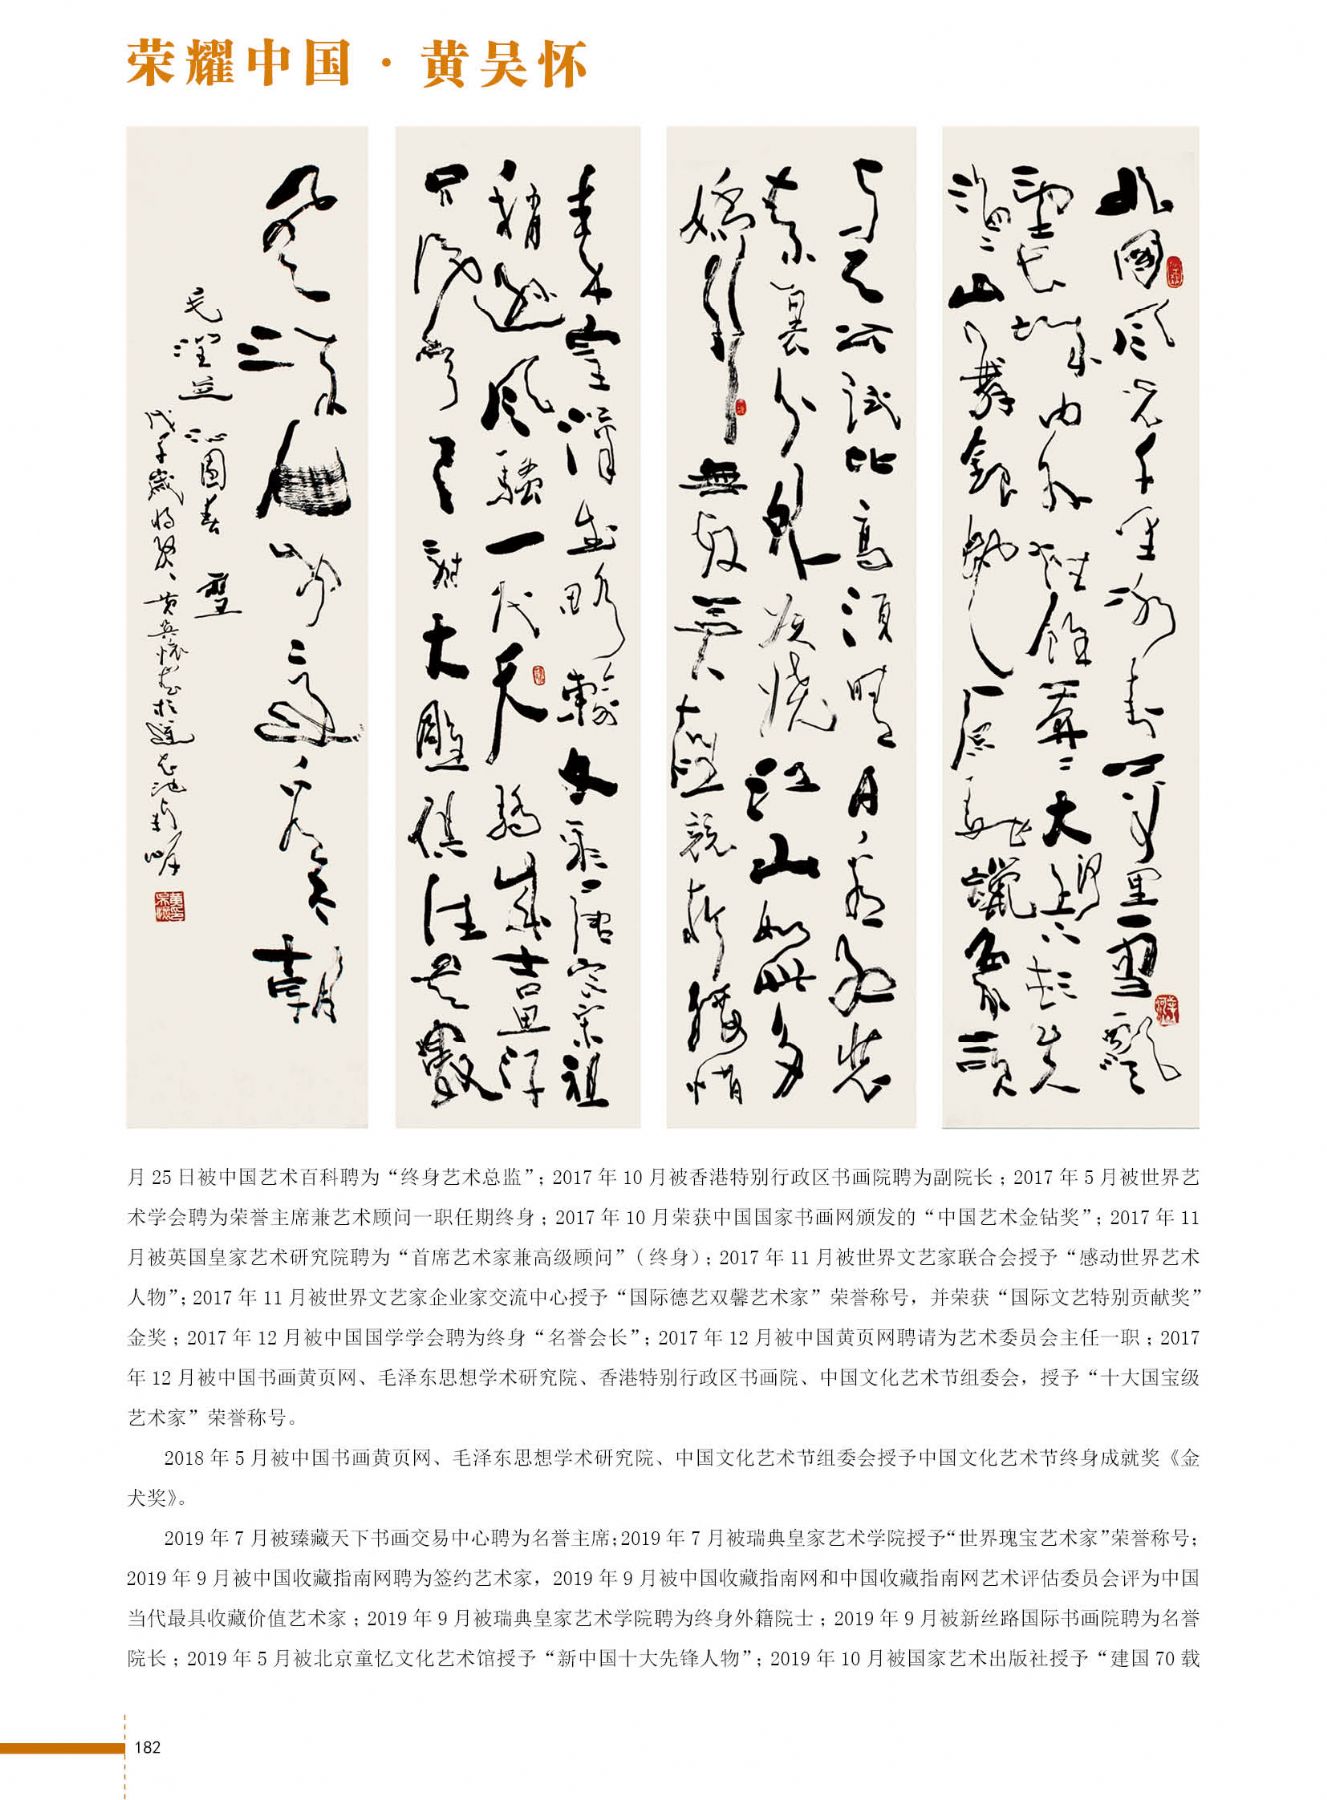 荣耀中国·黄吴怀
北國风光千里冰封万里雪飘
望长城内外惟餘莽莽大河上下顿失
滔滔山舞銀蛇原驰蠟象欲
与天公试比高须晴日看红装
素裹分外妖娆江山如此多
娇引無数英雄競折腰惜
秦皇漢武略输文采唐宗宋祖
稍逊风骚一代天骄成吉思汗
只识弯弓射大雕俱往矣數
风流人物还看今朝
毛澤東
沁園春 雪
月 25 日被中国艺术百科聘为“终身艺术总监”；2017 年 10 月被香港特别行政区书画院聘为副院长；2017 年 5 月被世界艺
术学会聘为荣誉主席兼艺术顾问一职任期终身；2017 年 10 月荣获中国国家书画网颁发的“中国艺术金钻奖”；2017 年 11
月被英国皇家艺术研究院聘为“首席艺术家兼高级顾问”（终身）；2017 年 11 月被世界文艺家联合会授予“感动世界艺术
人物”；2017 年 11 月被世界文艺家企业家交流中心授予“国际德艺双馨艺术家”荣誉称号，并荣获“国际文艺特别贡献奖”
金奖；2017 年 12 月被中国国学学会聘为终身“名誉会长”；2017 年 12 月被中国黄页网聘请为艺术委员会主任一职；2017
年 12 月被中国书画黄页网、毛泽东思想学术研究院、香港特别行政区书画院、中国文化艺术节组委会，授予“十大国宝级
艺术家”荣誉称号。
2018 年 5 月被中国书画黄页网、毛泽东思想学术研究院、中国文化艺术节组委会授予中国文化艺术节终身成就奖《金
犬奖》。
2019 年 7 月被臻藏天下书画交易中心聘为名誉主席；2019 年 7 月被瑞典皇家艺术学院授予“世界瑰宝艺术家”荣誉称号；
2019 年 9 月被中国收藏指南网聘为签约艺术家，2019 年 9 月被中国收藏指南网和中国收藏指南网艺术评估委员会评为中国
当代最具收藏价值艺术家；2019 年 9 月被瑞典皇家艺术学院聘为终身外籍院士；2019 年 9 月被新丝路国际书画院聘为名誉
院长；2019 年 5 月被北京童忆文化艺术馆授予“新中国十大先锋人物”；2019 年 10 月被国家艺术出版社授予“建国 70 载
182